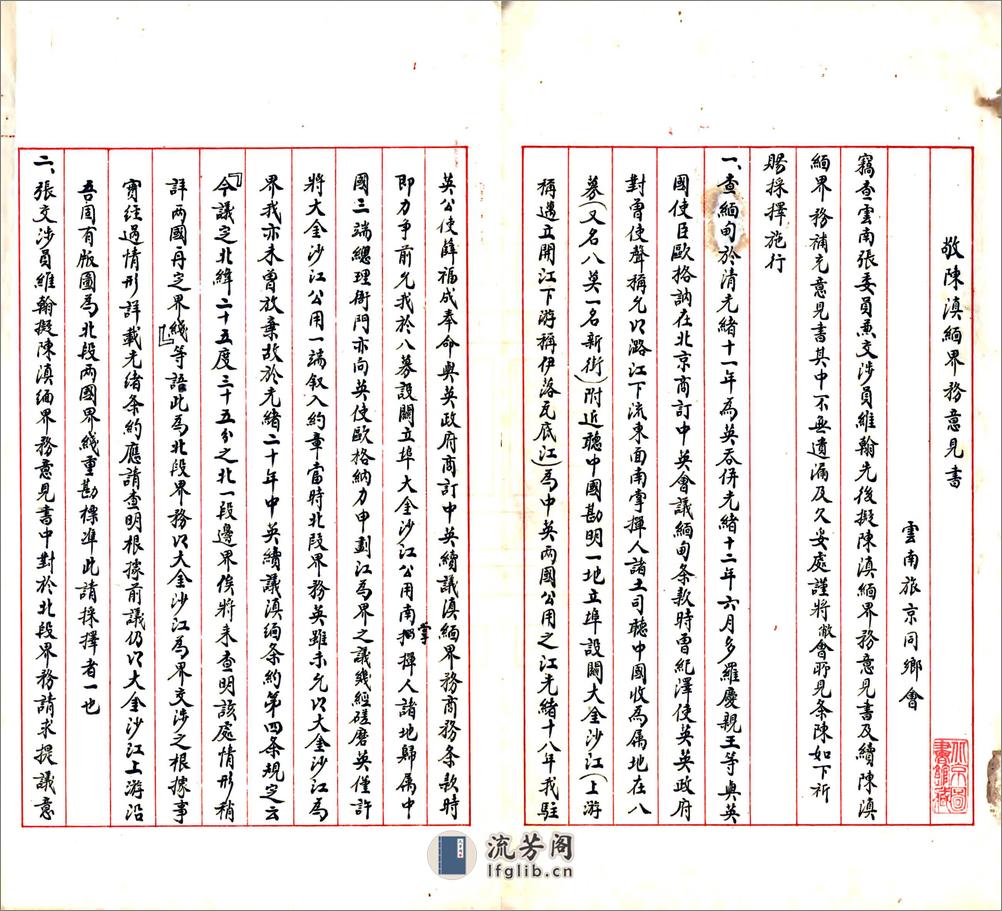 敬陳滇緬界務意見書
雲南旅京同鄉會
竊查雲南張委員兼交涉員維翰先後擬陳滇緬界務意見書及續陳滇
緬界務補充意見書其中不無遺漏及欠妥處謹將敝會所見条陳如下祈
賜採擇施行
一、查緬甸於清光緒十一年為英吞併光緒十二年六月多羅慶親王等與英
國使臣歐格訥在北京商訂中英會議緬甸条款時曾紀澤使英英政府
對曾使聲稱允以潞江下流東面南掌撣人諸土司聽中國收為属地在八
募(又名八莫一名新街)附近聽中國勘明一地立埠設關大金沙江(上游
稱邁立開江下游稱伊洛瓦底江)為中英两國公用之江光緒十八年我駐
英公使薛福成奉命與英政府商訂中英續議滇緬界務商務条款時
即力争前允我於八募設關立埠大金沙江公用南掌撣人諸地歸属中
國三端總理衙門亦向英使歐格納力申劃江為界之議幾經磋磨英僅許
將大金沙江公用一端叙入約章當時北段界務英雖未允以大金沙江為
界我亦未曾放棄故於光緒二十年中英續議滇緬条約第四条規定云
『今議定北緯二十五度三十五分之北一段邊界俟將来查明該處情形稍
詳两國再定界綫』等語此為北段界務以大金沙江為界交涉之根據事
實经過情形詳載光緒条約應請查明根據前議仍以大金沙江上游沿
吾固有版圖為北段两國界綫重勘標準此請採擇者一也
二、張交涉員維翰擬陳滇緬界務意見書中對於北段界務請求提議意
北京圖
書館藏
流芳阁
lfglib.cn